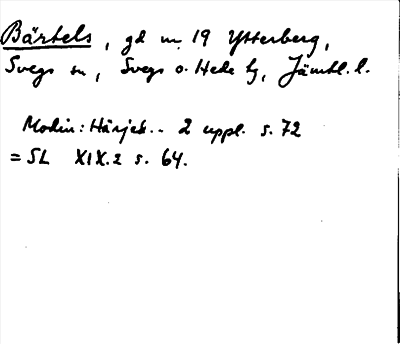 Bärtels, gd nr 19 Ytterberg,
Svegs sn, Svegs o. Hede tg, Jämtl. l.
Modin: Härjed.. 2 uppl. s. 72
= SL XIX.2 s. 64.